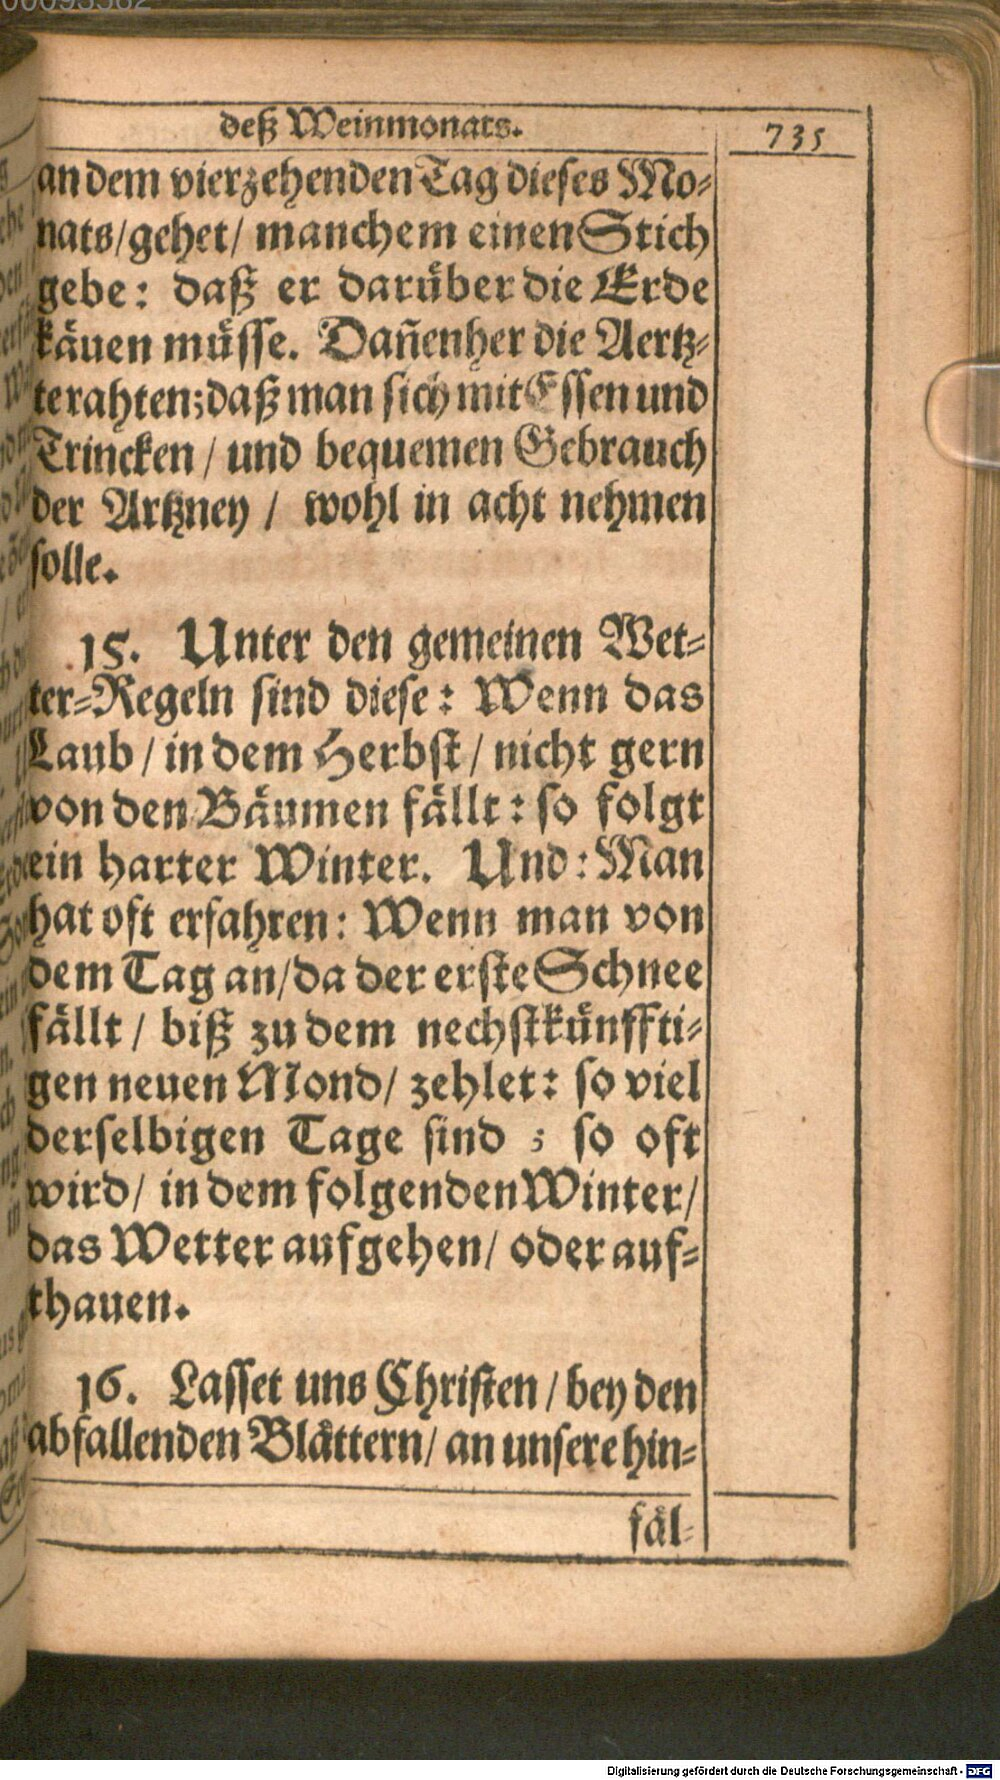 deß Weinmonats.
735
an dem vierzehenden Tag dieses Mo-
nats/gehet/ manchem einen Stich
gebe: daß er darüber die Erde
käuen müsse. Dañenher die Aertz-
te rahten; daß man sich mit Essen und
Trincken / und bequemen Gebrauch
der Artzney / wohl in acht nehmen
solle.
15. Unter den gemeinen Wet-
ter-Regeln sind diese: Wenn das
Laub / in dem Herbst / nicht gern
von den Bäumen fällt: so folgt
ein harter Winter. Und: Man
hat oft erfahren: Wenn man von
dem Tag an/da der erste Schnee
fällt / biß zu dem nechstkünffti-
gen neuen Mond/ zehlet: so viel
derselbigen Tage sind ; so oft
wird/ in dem folgenden Winter/
das Wetter aufgehen/ oder auf-
thauen.
16. Lasset uns Christen / bey den
abfallenden Blättern/ an unsere hin-
fäl-
Digitalisierung gefördert durch die Deutsche Forschungsgemeinschaft - DFG